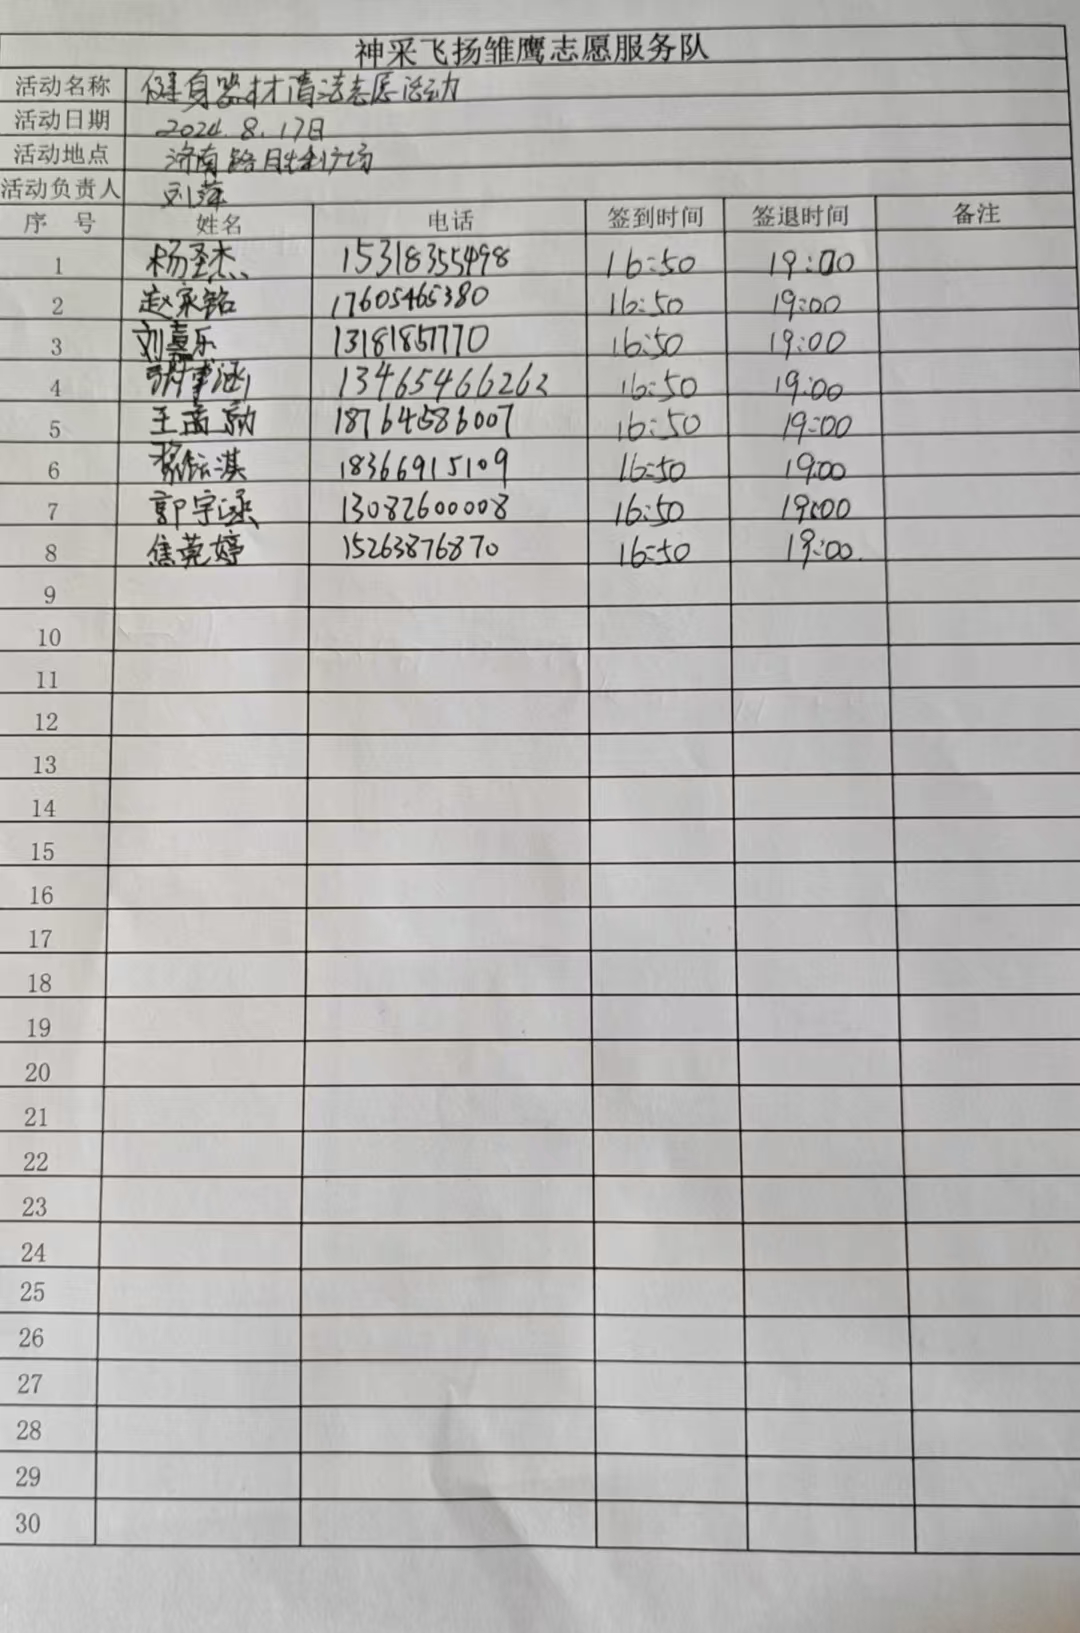 神采飞扬雏鹰志愿服务队
活动名称 健身器材清洁志愿活动
活动日期 2024.8.17日
活动地点 济南路胜利广场
活动负责人 刘萍
序 号 姓名 电话 签到时间 签退时间 备注
1 杨圣杰 15318355498 16:50 19:00
2 赵家铭 17605465380 16:50 19:00
3 刘嘉乐 13181851770 16:50 19:00
4 涵 13465466262 16:50 19:00
5 王 18764586007 16:50 19:00
6 淇 18366915109 16:50 19:00
7 郭宇涵 13082600008 16:50 19:00
8 焦莞婷 15263876870 16:50 19:00.
9
10
11
12
13
14
15
16
17
18
19
20
21
22
23
24
25
26
27
28
29
30